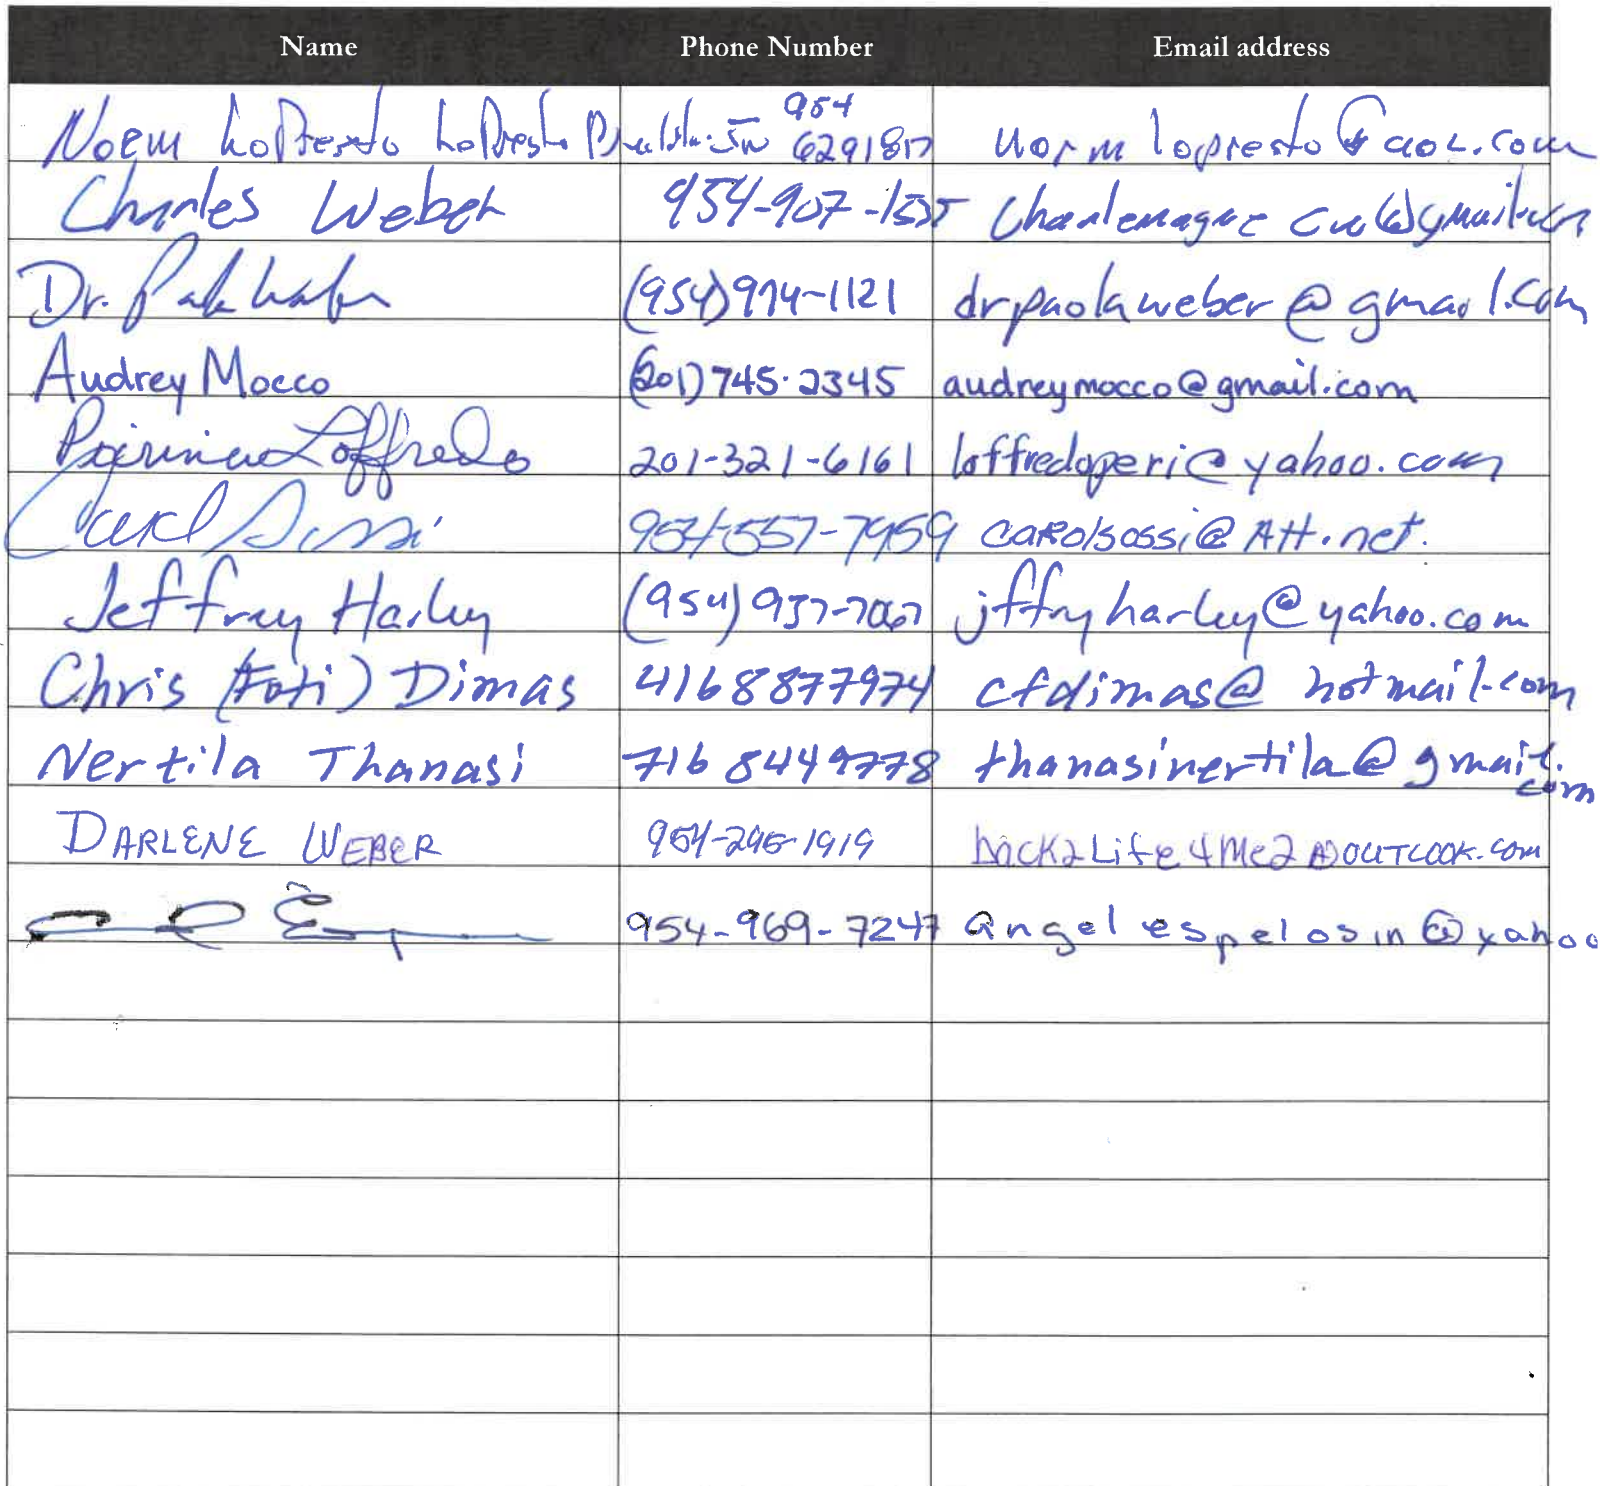 Name Phone Number Email address
Norm LoPresto LoPresto 954 6291817 normlopresto@aol.com
Charles Weber 954-907-1535 Charlemagne cw@ymail.com
Dr. 954) 974-1121 drpaolaweber@gmail.com
Audrey Mocco (201) 745-2345 audreymocco@gmail.com
Loffredo 201-321-6161 loffredoperi@yahoo.com
Carol Sossi 954-557-7959 CAROlsossi@Att.net.
Jeffrey Harley (954) 937-7067 jffryharley@yahoo.com
Chris (Foti) Dimas 4168877974 cfdimas@hotmail.com
Nertila Thanasi 716 8449778 thanasinertila@gmail.
com
DARLENE WEBER 954-295-1919 back2Life4Me2@OUTLOOK.com
954-969-7247 angelespelosin@yahoo